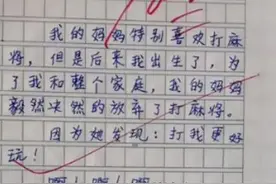 我的妈妈特别喜欢打麻
将，但是后来我出生了，为
了我和整个家庭，我的妈妈
毅然决然的放弃了打麻将。
因为她发现：打我更好
玩！
啊！啊！啊！